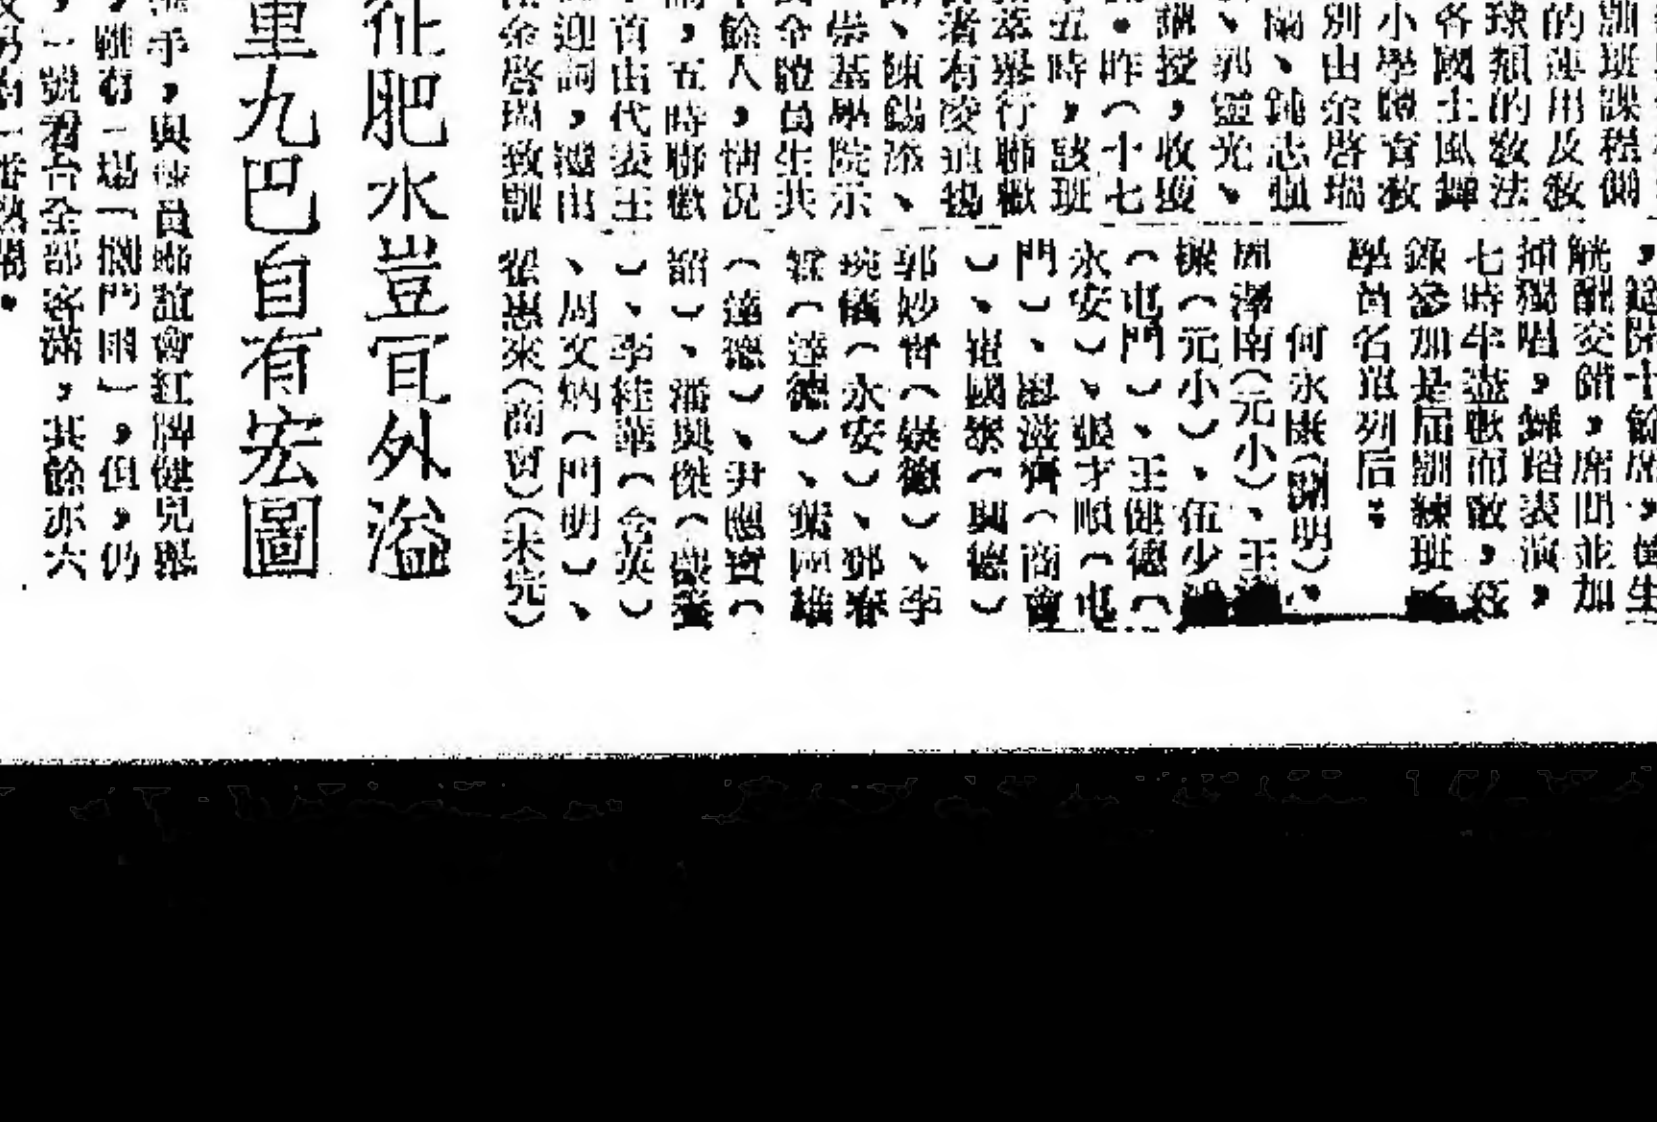 訓班課程側
的運用及教
球類的教法
各國土風舞
小學體育教
別由余啓瑞
蘭、鍾志強
、郭靈光、
講授，收獲
。昨（十七
五時，該班
萃舉行聯歡
者有凌道揚
、陳錫添、
崇基學院示
全體員生共
餘人，情况
，五時聯歡
首由代表王
迎詞，繼由
余啓瑞致訓
，筵開十餘席，員生
觥酬交錯，席間並加
揷獨唱，舞蹈表演，
七時半盡歡而散，茲
錄參加是屆訓練班
學員名單列后：
何永康（淵明）、
周澤南（元小）、王
樑（元小）、伍少
（屯門）、王健德（
永安）、張才順（屯
門）、愚滋齊（商會
）、崔國榮（興德）
郭妙賢（崇德）、李
琬儀（永安）、鄧春
霖（達德）、葉國雄
（達德）、尹應賓（
韶）、潘興傑（
）、李桂華（金英）
、周文炳（門明）、
翟惠來（商會）（未完）
征肥水豈宜外溢
重九巴自有宏圖
手，與球員聯誼會紅牌健兒舉
，雖有一場「閘門閘」，但，仍
，一號看台全部客滿，其餘亦六
另有一番熱鬧。